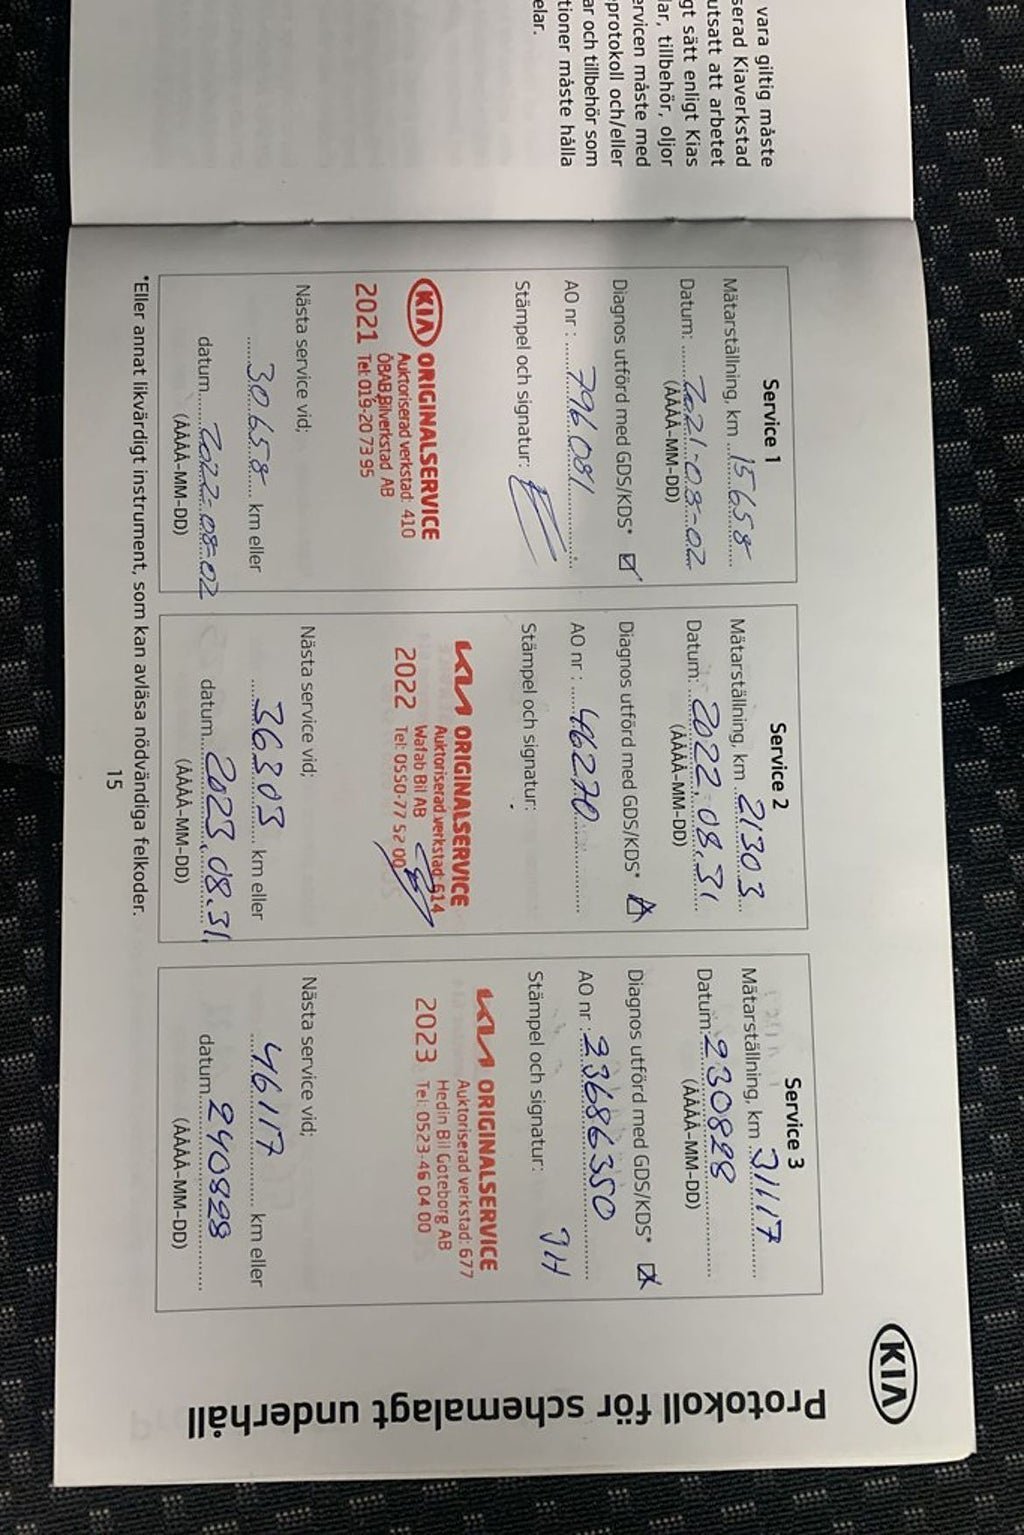 vara giltig måste
serad Kiaverkstad
utsatt att arbetet
gt sätt enligt Kias
lar, tillbehör, oljor
ervicen måste med
protokoll och/eller
ar och tillbehör som
tioner måste hålla
elar.
KIA
Protokoll för schemalagt underhåll
Service 1
Mätarställning, km 15658
Datum: 2021-08-02
(ÅÅÅÅ-MM-DD)
Diagnos utförd med GDS/KDS* ☑
AO nr : 796081
Stämpel och signatur:
KIA ORIGINALSERVICE
Auktoriserad verkstad: 410
2021 ÖBAB Bilverkstad AB
Tel: 019-20 73 95
Nästa service vid;
30658 km eller
datum 2022-08-02
(ÅÅÅÅ-MM-DD)
Service 2
Mätarställning, km 21303
Datum: 2022.08.31
(ÅÅÅÅ-MM-DD)
Diagnos utförd med GDS/KDS* ☑
AO nr : 46270
Stämpel och signatur:
KIA ORIGINALSERVICE
Auktoriserad verkstad: 614
2022 Wafab Bil AB
Tel: 0550-77 52 00
Nästa service vid;
36303 km eller
datum 2023.08.31
(ÅÅÅÅ-MM-DD)
Service 3
Mätarställning, km 31117
Datum: 230828
(ÅÅÅÅ-MM-DD)
Diagnos utförd med GDS/KDS* ☒
AO nr : 33686350
Stämpel och signatur: JH
KIA ORIGINALSERVICE
Auktoriserad verkstad: 677
2023 Hedin Bil Göteborg AB
Tel: 0523-46 04 00
Nästa service vid;
46117 km eller
datum 240828
(ÅÅÅÅ-MM-DD)
*Eller annat likvärdigt instrument, som kan avläsa nödvändiga felkoder.
15